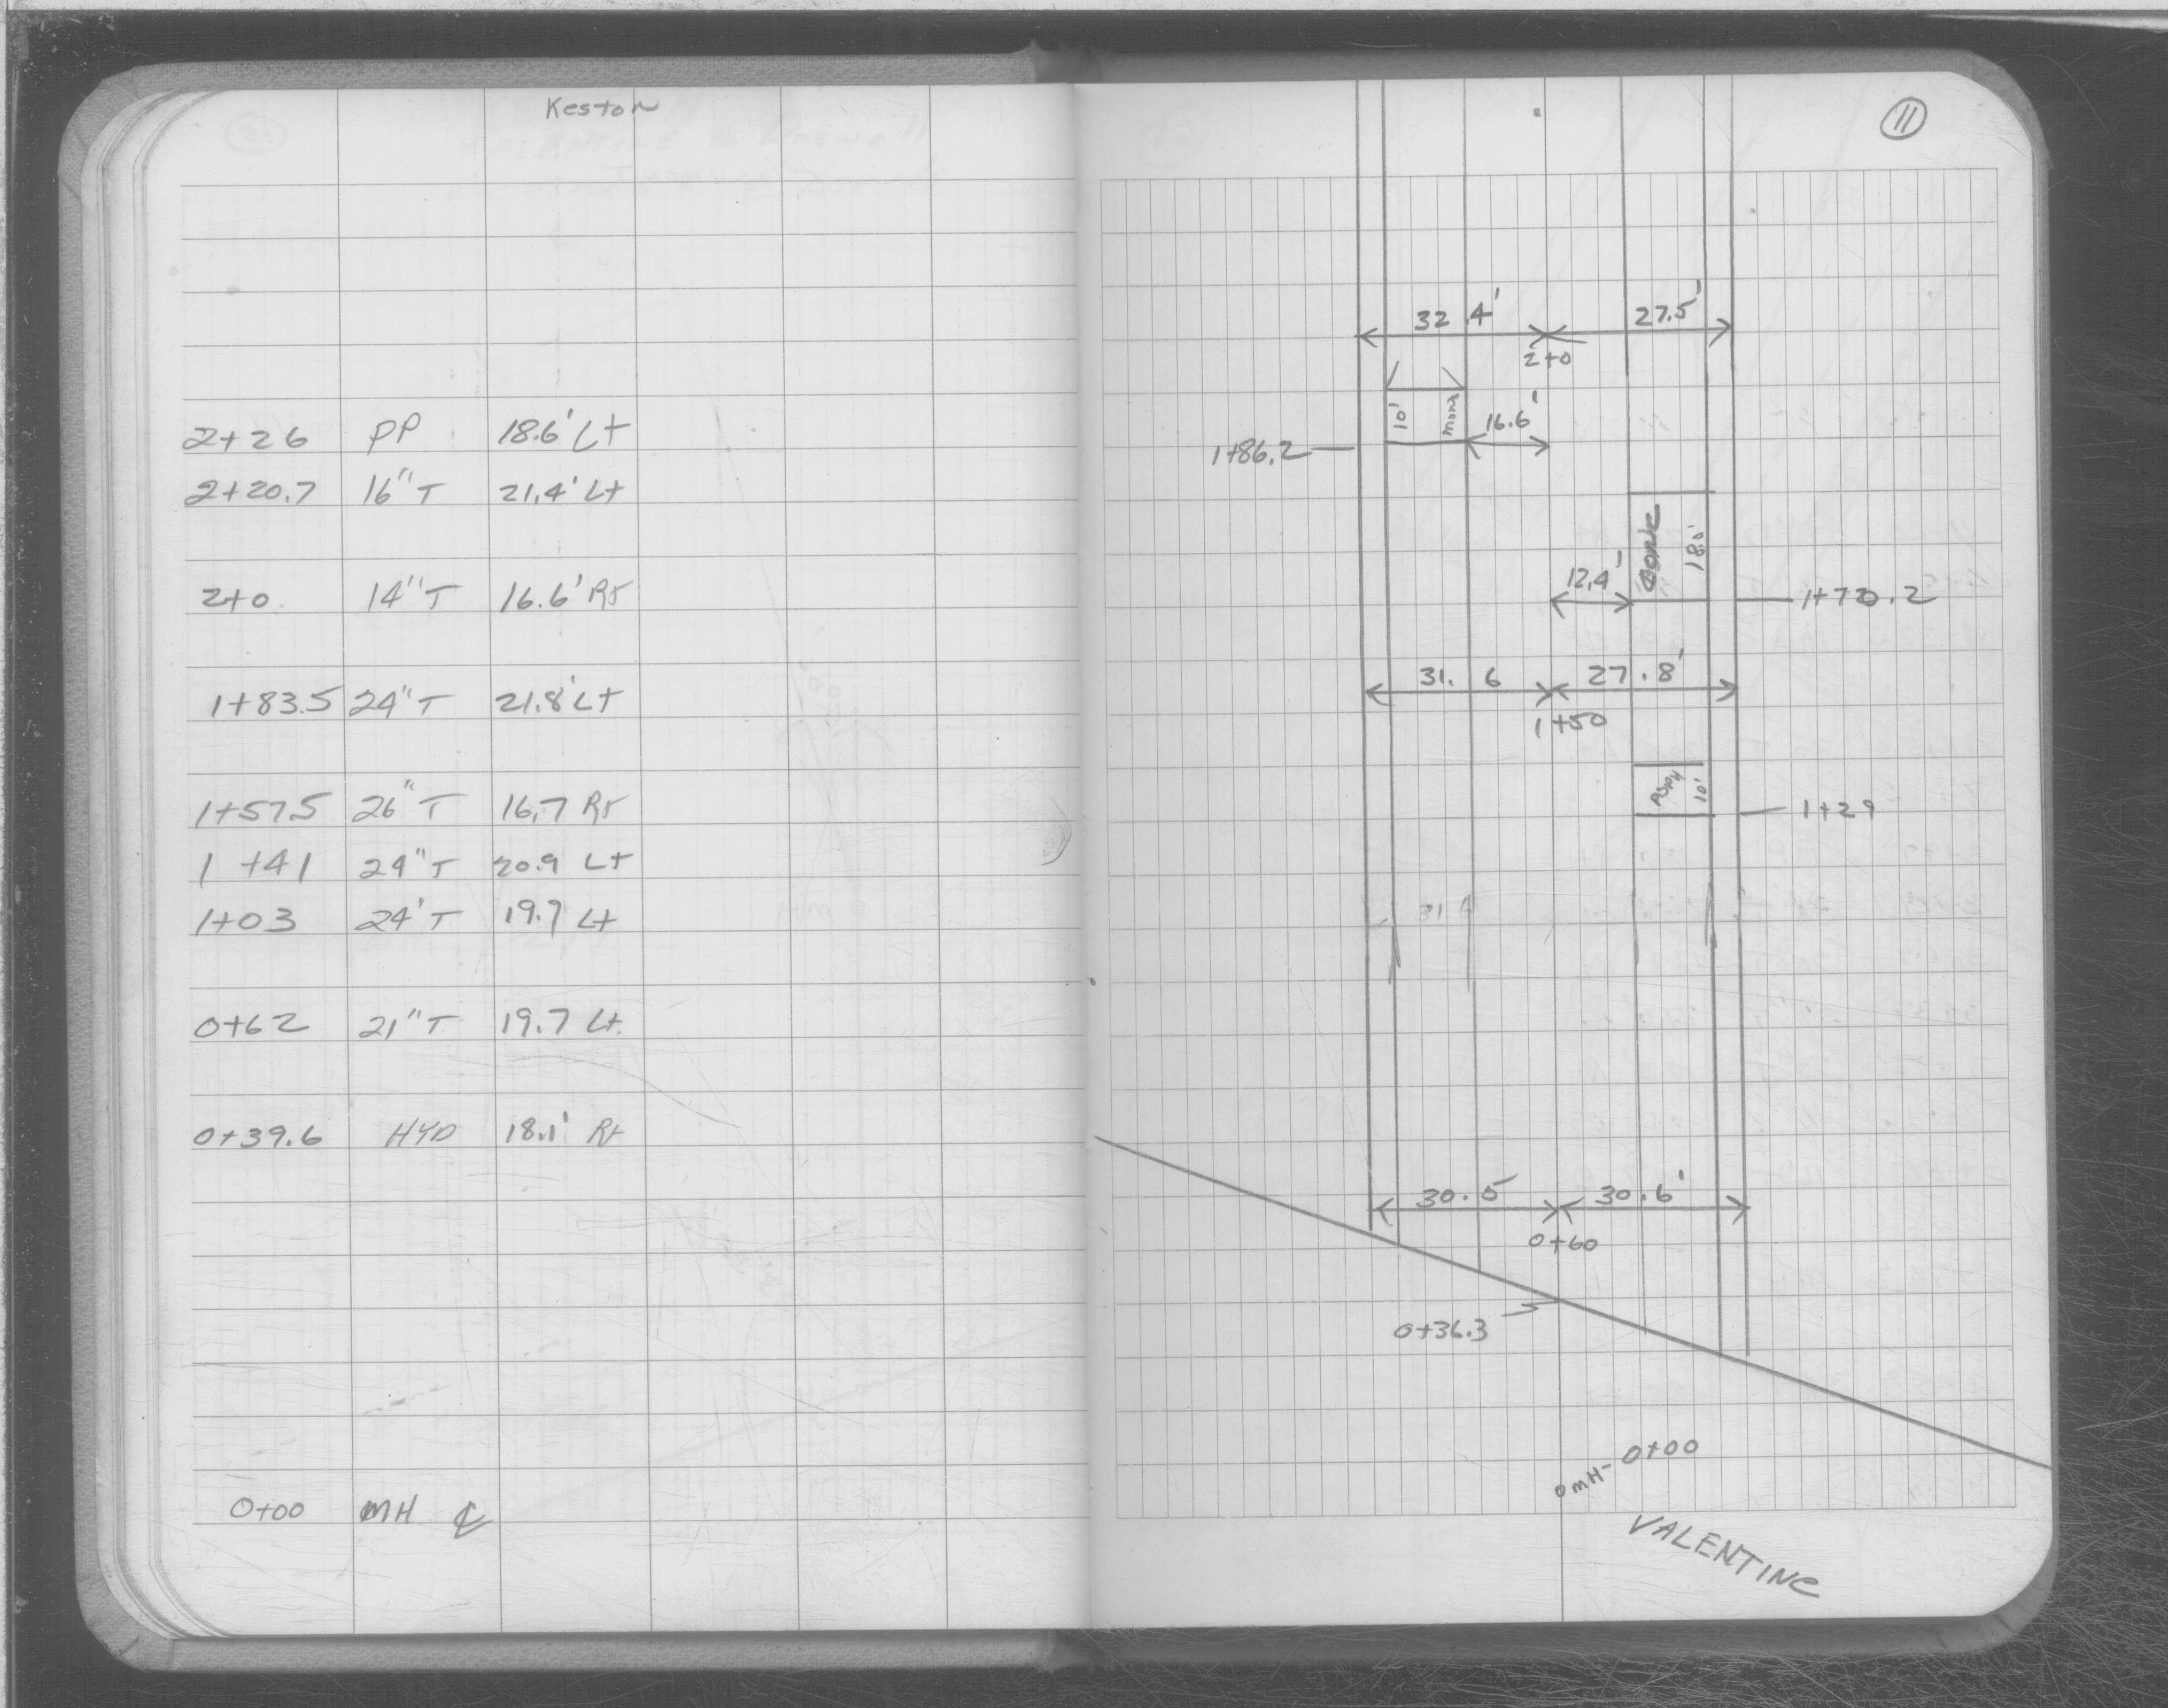 Keston
2+26 PP 18.6' Lt
2+20.7 16" T 21.4' Lt
2+0 14" T 16.6' Rt
1+83.5 24" T 21.8' Lt
1+57.5 26" T 16.7 Rt
1+41 24" T 20.9 Lt
1+03 24' T 19.7 Lt
0+62 21" T 19.7 Lt.
0+39.6 HYD 18.1' Rt
0+00 MH ℄
11
32.4' 27.5'
2+0
10' 16.6'
1+86.2
CONC 18.0'
12.4' 1+70.2
31.6 27.8'
1+50
10'
1+29
30.5 30.6'
0+60
0+36.3
MH - 0+00
VALENTINE